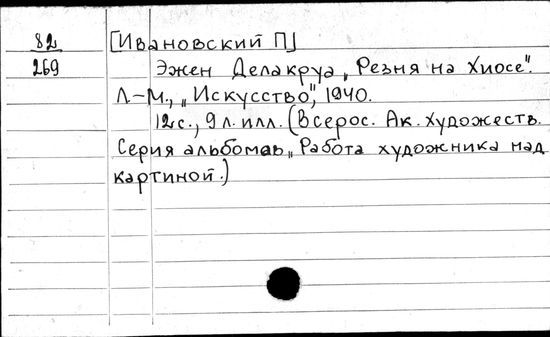 82 [Ивановский П]
269 Эжен Делакруа „Резня на Хиосе".
Л-М., „Искусство", 1940.
12с., 9 л. илл. (Всерос. Ак. Художеств.
Серия альбомов „Работа художника над
картиной.)